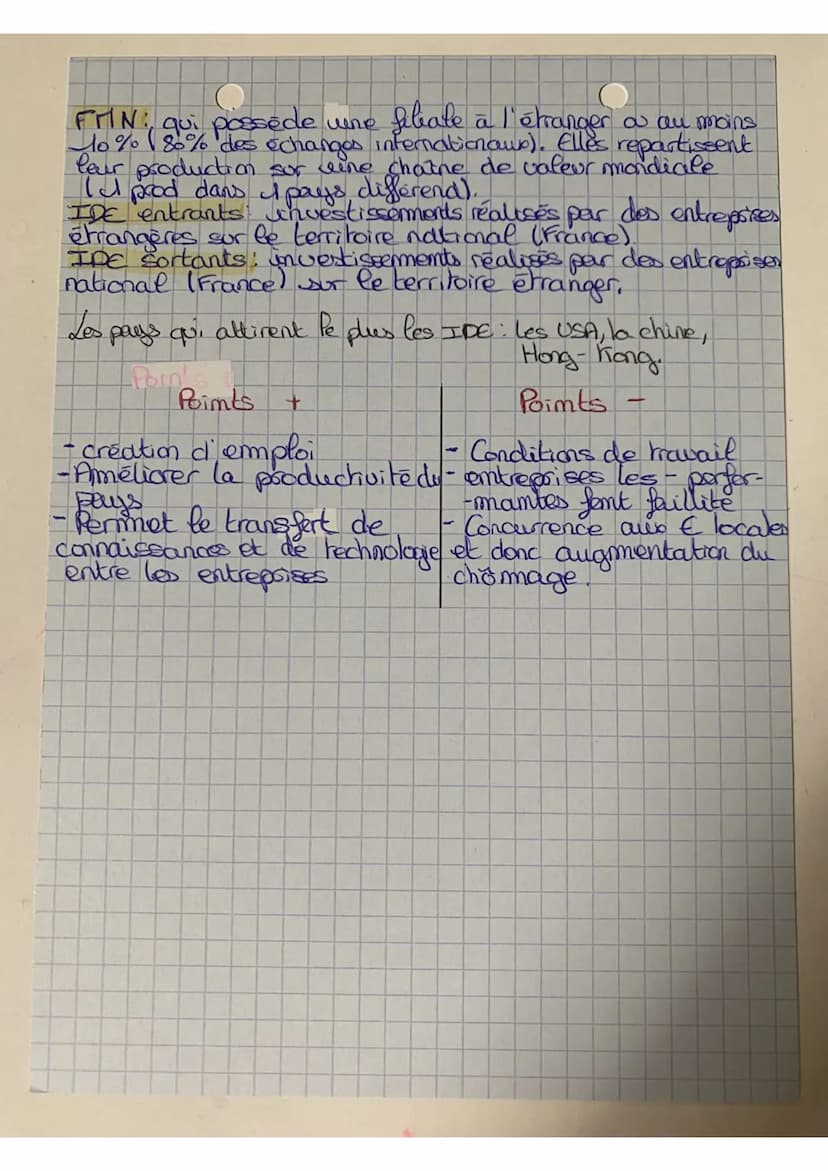 FTN: qui possède une filiale à l'étranger a au moins
10% (80% des échanges internationaux). Elles repartissent
leur production sur une chaîne de valeur mondiale
(1 prod dans 1 pays différend).
IDE entrants: investissements réalisés par des entreprises
étrangères sur le territoire national (France)
IDE sortants: investissements réalisés par des entreprises
national (France) sur le territoire étranger.
Les pays qui attirent le plus les IDE: les USA, la chine,
Hong-Kong.
Points
Points +
- création d'emploi
- Améliorer la productivité du
pays
- Permet le transfert de
connaissances et de technologie
entre les entreprises
Points -
- Conditions de travail
- entreprises les - perfor-
-mantes font faillite
- Concurrence aux E locales
et donc augmentation du
chômage.